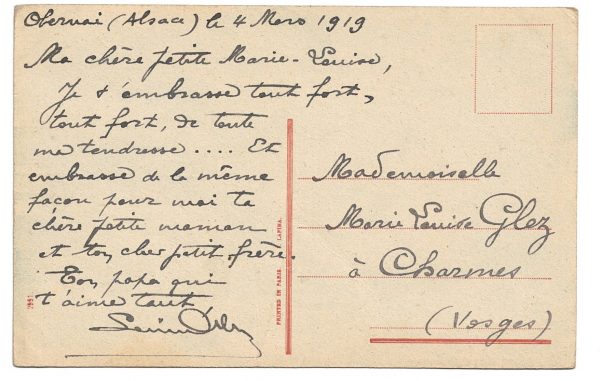 Obernai (Alsace) le 4 Mars 1919
Ma chère petite Marie-Louise,
Je t'embrasse tout fort,
tout fort, de toute
ma tendresse .... Et
embrasse de la même
façon pour moi ta
chère petite maman
et ton cher petit frère.
Ton papa qui
t'aime tant
Mademoiselle
Marie Louise Glez
à Charmes
(Vosges)
PRINTED IN PARIS LAPINA.